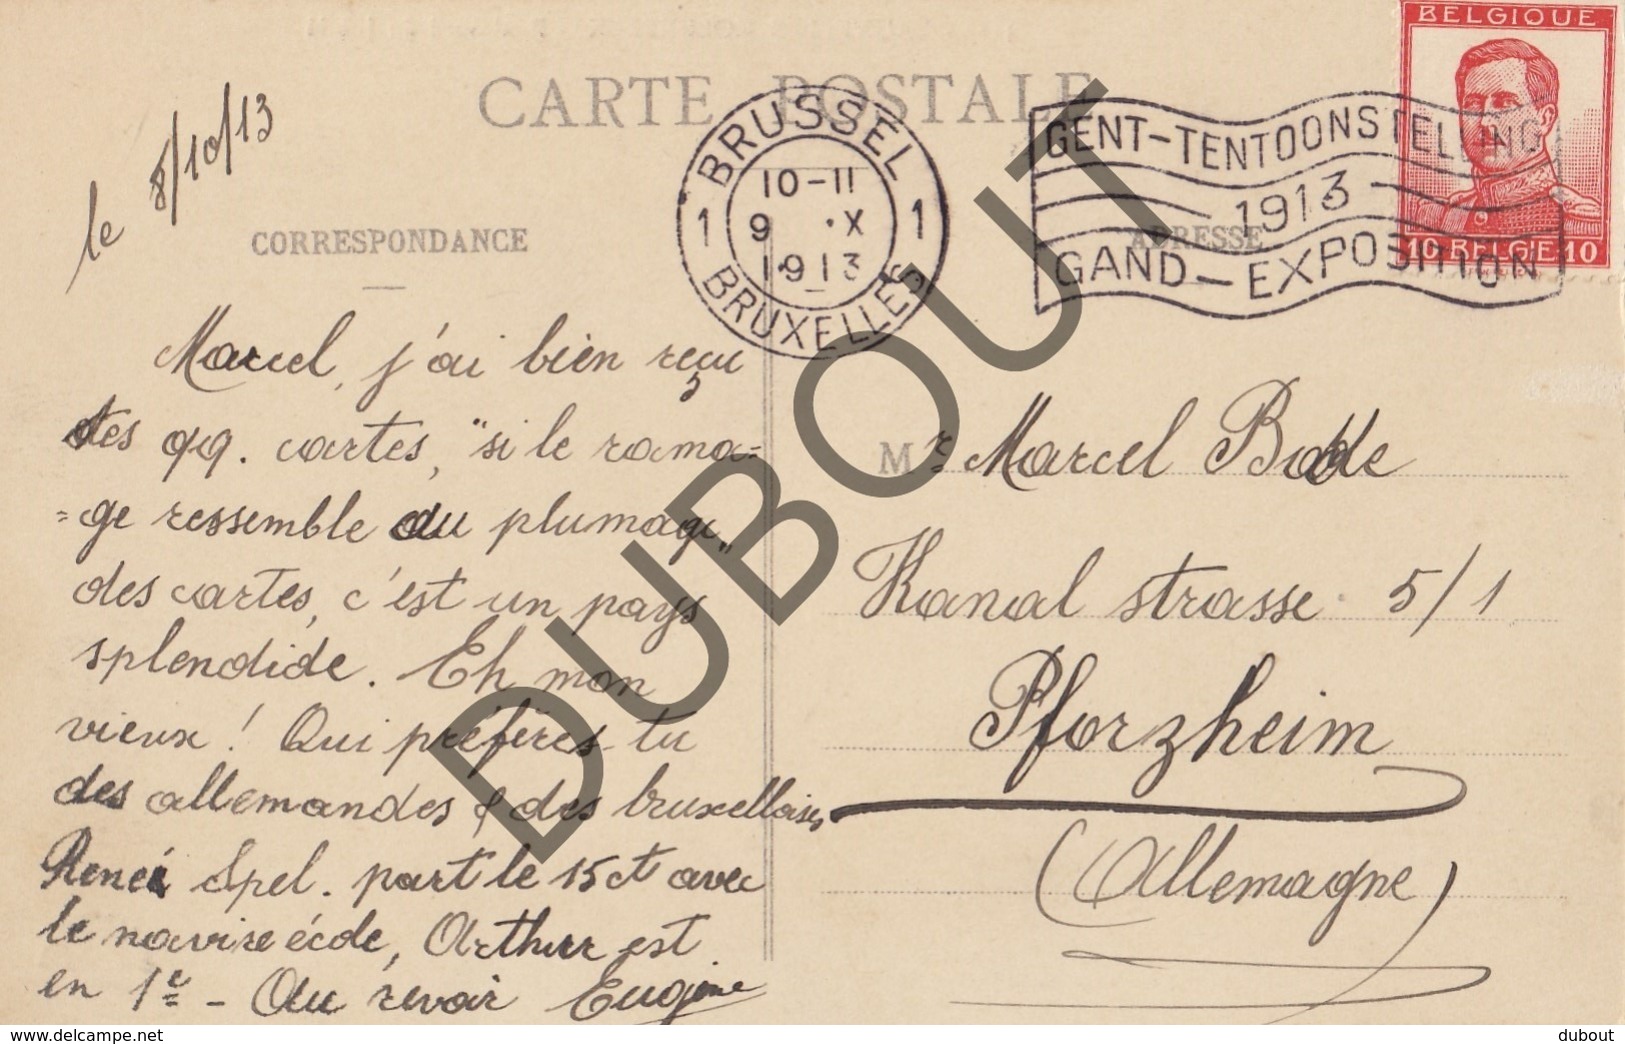 BELGIQUE
CARTE POSTALE
le 8/10/13
BRUSSEL
1 10-11 1
9 X
1913
BRUXELLES
GENT-TENTOONSTELLING
1913
GAND-EXPOSITION
10 BELGIE 10
CORRESPONDANCE
ADRESSE
Marcel, j'ai bien reçu
tes qq. cartes, "si le rama=
=ge ressemble au plumage"
des cartes, c'est un pays
splendide. Eh mon
vieux! Qui préfères-tu
des allemandes & des bruxelloises
René Spel. part le 15 ct avec
le navire école, Arthur est
en 1e - Au revoir Eugène
Mr Marcel
Kanal strasse 5/1
Pforzheim
(Allemagne)
DUBOUT
delcampe.net
dubout